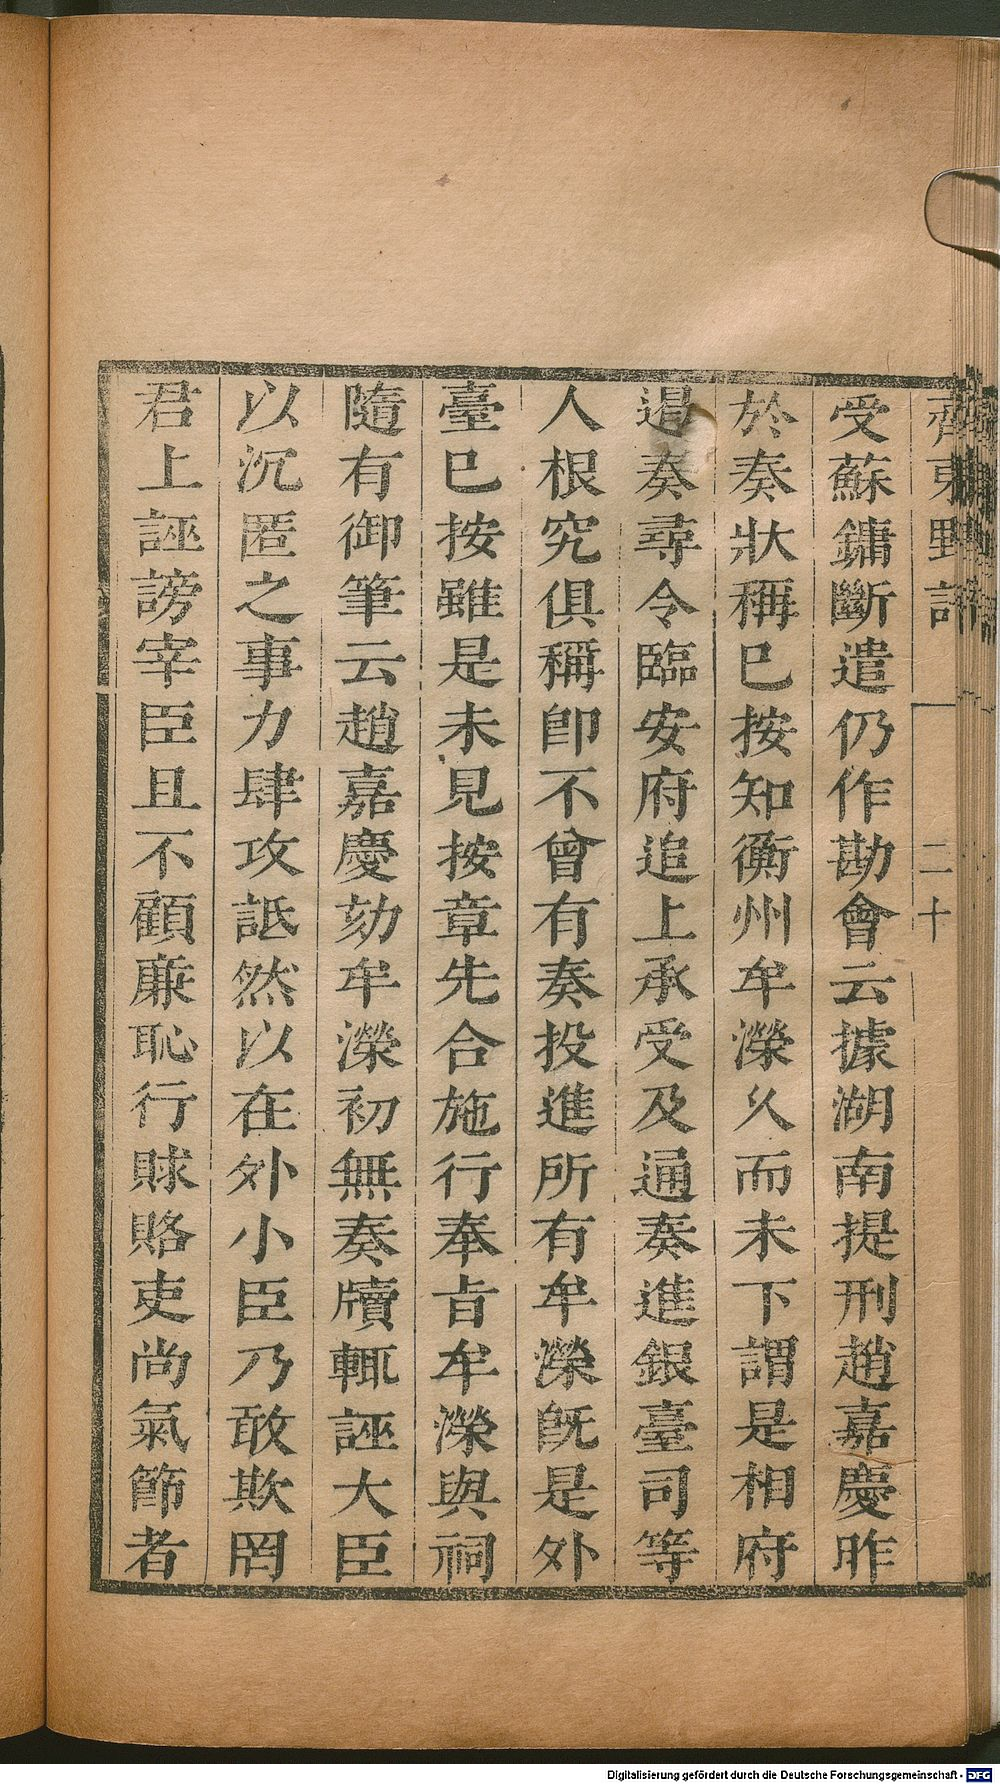 齊東野語
二十
受蘇鏞斷遣仍作勘會云據湖南提刑趙嘉慶昨
於奏狀稱已按知衡州牟濚久而未下謂是相府
遏奏尋令臨安府追上承受及通奏進銀臺司等
人根究俱稱卽不曾有奏投進所有牟濚旣是外
臺已按雖是未見按章先合施行奉旨牟濚與祠
隨有御筆云趙嘉慶劾牟濚初無奏牘輒誣大臣
以沉匿之事力肆攻詆然以在外小臣乃敢欺罔
君上誣謗宰臣且不顧廉恥行賕賂吏尚氣節者
Digitalisierung gefördert durch die Deutsche Forschungsgemeinschaft - DFG